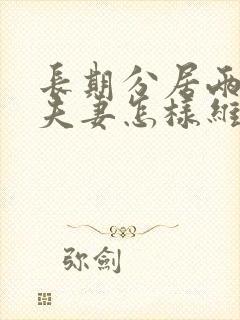 長期分居兩
夫妻怎樣維
弥劍